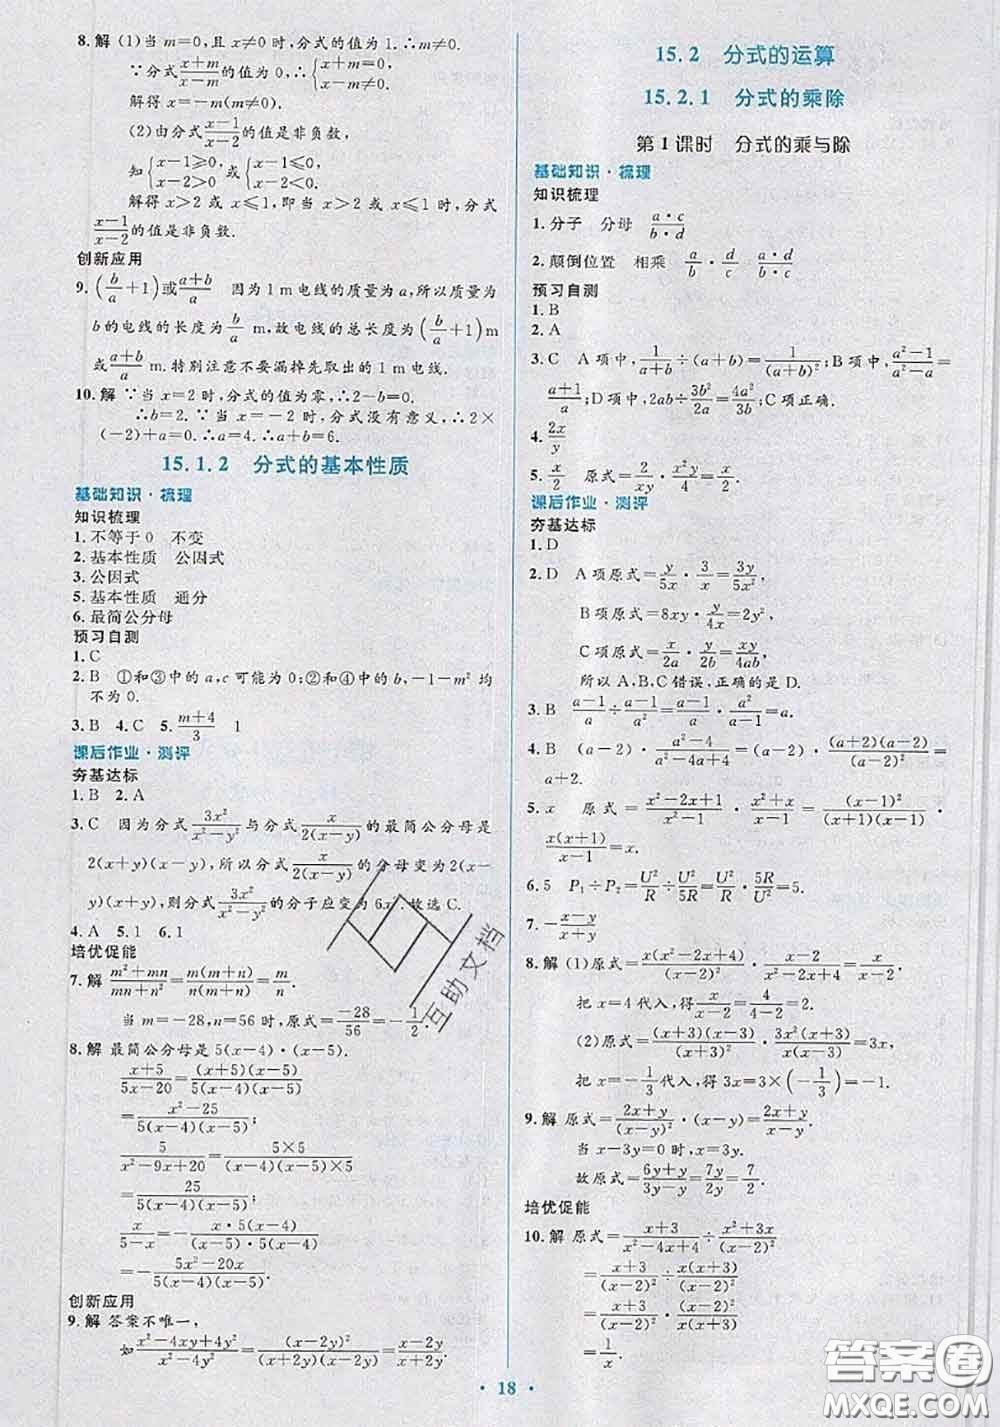 8.解 (1)当 m=0,且 x≠0时,分式的值为1.∴m=0.
∵分式(x+m)/(x-m)的值为0,∴{x+m=0, x-m≠0.
解得 x=-m(m≠0).
(2)由分式(x-1)/(x-2)的值是非负数,
知{x-1≥0, x-2>0 或{x-1≤0, x-2<0.
解得 x>2 或 x≤1,即当 x>2 或 x≤1 时,分式
(x-1)/(x-2)的值是非负数.
创新应用
9.(b/a+1)或(a+b)/a 因为1 m电线的质量为a,所以质量为
b的电线的长度为 b/a m,故电线的总长度为(b/a+1)m
或(a+b)/a m.特别注意不要漏掉先取出的1 m电线.
10.解 ∵当 x=2时,分式的值为零,∴2-b=0.
∴b=2.∵当 x=-2 时,分式没有意义,∴2×
(-2)+a=0.∴a=4.∴a+b=6.
15.1.2 分式的基本性质
基础知识·梳理
知识梳理
1.不等于0 不变
2.基本性质 公因式
3.公因式
5.基本性质 通分
6.最简公分母
预习自测
1.C
2.B ①和③中的a,c可能为0;②和④中的b,-1-m² 均
不为0.
3.B 4.C 5.(m+4)/3 1
课后作业·测评
夯基达标
1.B 2.A
3.C 因为分式3x²/(x²-y²)与分式x/(2(x-y))的最简公分母是
2(x+y)(x-y),所以分式x/(2(x-y))的分母变为2(x-
y)(x+y),则分式3x²/(x²-y²)的分子应变为6x².故选C.
4.A 5.1 6.1
培优促能
7.解 (m²+mn)/(mn+n²)=m(m+n)/(n(m+n))=m/n.
当 m=-28,n=56时,原式=-28/56=-1/2.
8.解 最简公分母是5(x-4)·(x-5).
(x+5)/(5x-20)=(x+5)(x-5)/(5(x-4)(x-5))
=(x²-25)/(5(x-4)(x-5));
5/(x²-9x+20)=5×5/((x-4)(x-5)×5)
=25/(5(x-4)(x-5));
x/(5-x)=-x·5(x-4)/(5(x-4)(x-5))
=-(5x²-20x)/(5(x-4)(x-5)).
创新应用
9.解 答案不唯一,
如(x²-4xy+4y²)/(x²-4y²)=(x-2y)²/((x+2y)(x-2y))=(x-2y)/(x+2y).
15.2 分式的运算
15.2.1 分式的乘除
第1课时 分式的乘与除
基础知识·梳理
知识梳理
1.分子 分母 a·c/(b·d)
2.颠倒位置 相乘 a/b·d/c a·d/(b·c)
预习自测
1.B
2.A
3.C A项中,1/a÷(a+b)=1/(a+b)²;B项中,(a²-1)/(a-1)=
(a+1)/1;D项中,2ab÷3b²/2a=4a²/3b;C项正确.
4.2x/y
5.x/2 原式=2/xy·x²y/4=x/2.
课后作业·测评
夯基达标
1.D
2.D A项原式=y/5x·3/x=3y/5x²,
B项原式=8xy·y/4x=2y²,
C项原式=x/2a·y/2b=xy/4ab,
所以A、B、C错误,正确的是D.
3.B (a-1)/a÷(a-1)/a²=(a-1)/a·a²/(a-1)=a.
4.B (a-2)·(a²-4)/(a²-4a+4)=(a-2)·(a+2)(a-2)/(a-2)²=
a+2.
5.x 原式=(x²-2x+1)/(x²-1)·(x²+x)/(x-1)=(x-1)²/((x+1)(x-1))·
x(x+1)/(x-1)=x.
6.5 P₁÷P₂=U²/R÷U²/5R=U²/R·5R/U²=5.
7.-(x-y)/(x+y)
8.解 (1)原式=x(x²-2x+4)/(x-2)²·(x-2)/(x²-2x+4)=x/(x-2).
把 x=4代入,得x/(x-2)=4/(4-2)=2.
(2)原式=(x+3)(x-3)/(x+3)²·3x(x+3)/(x-3)=3x,
把 x=-1/3代入,得3x=3×(-1/3)=-1.
9.解 原式=(2x+y)/(x-y)²·(x-y)=(2x+y)/(x-y).
当 x-3y=0时,x=3y.
故原式=(6y+y)/(3y-y)=7y/2y=7/2.
培优促能
10.解 原式=(x+3)/(x²-4x+4)÷(x²+3x)/(x-2)²
=(x+3)/(x-2)²÷x(x+3)/(x-2)²
=(x+3)/(x-2)²·(x-2)²/(x(x+3))
=1/x.
· 18 ·
互助文档
答案圈
MXQE.COM